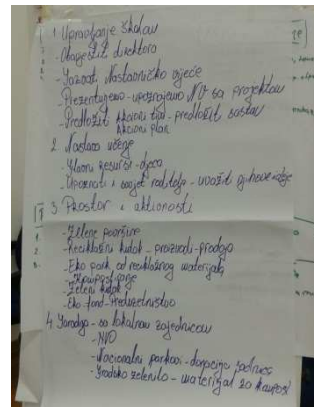 1. Upravljanje školom
- Obavjestit direktora
- Sazvat Nastavničko vijeće
- Prezentujemo - upoznajemo NV sa projektom
- Predložiti Akcioni tim - predložit sastav
Akcioni plan
2. Nastava učenje
- Glavni resursi - djeca
- Upoznati i savjet roditelja - uvažit njihove
3. Prostor i aktivnosti
- Zelene površine
- Reciklažni kutak - proizvodi - prodaja
- Eko park od reciklažnog materijala
- Kompostiranje
- Zeleni kutak
- Eko fond - Preduzetništvo
4. Saradnja - sa lokalnom zajednicom
- NVO
- Nacionalni parkovi - donacija sadnica
- Gradsko zelenilo - materijal za kompost